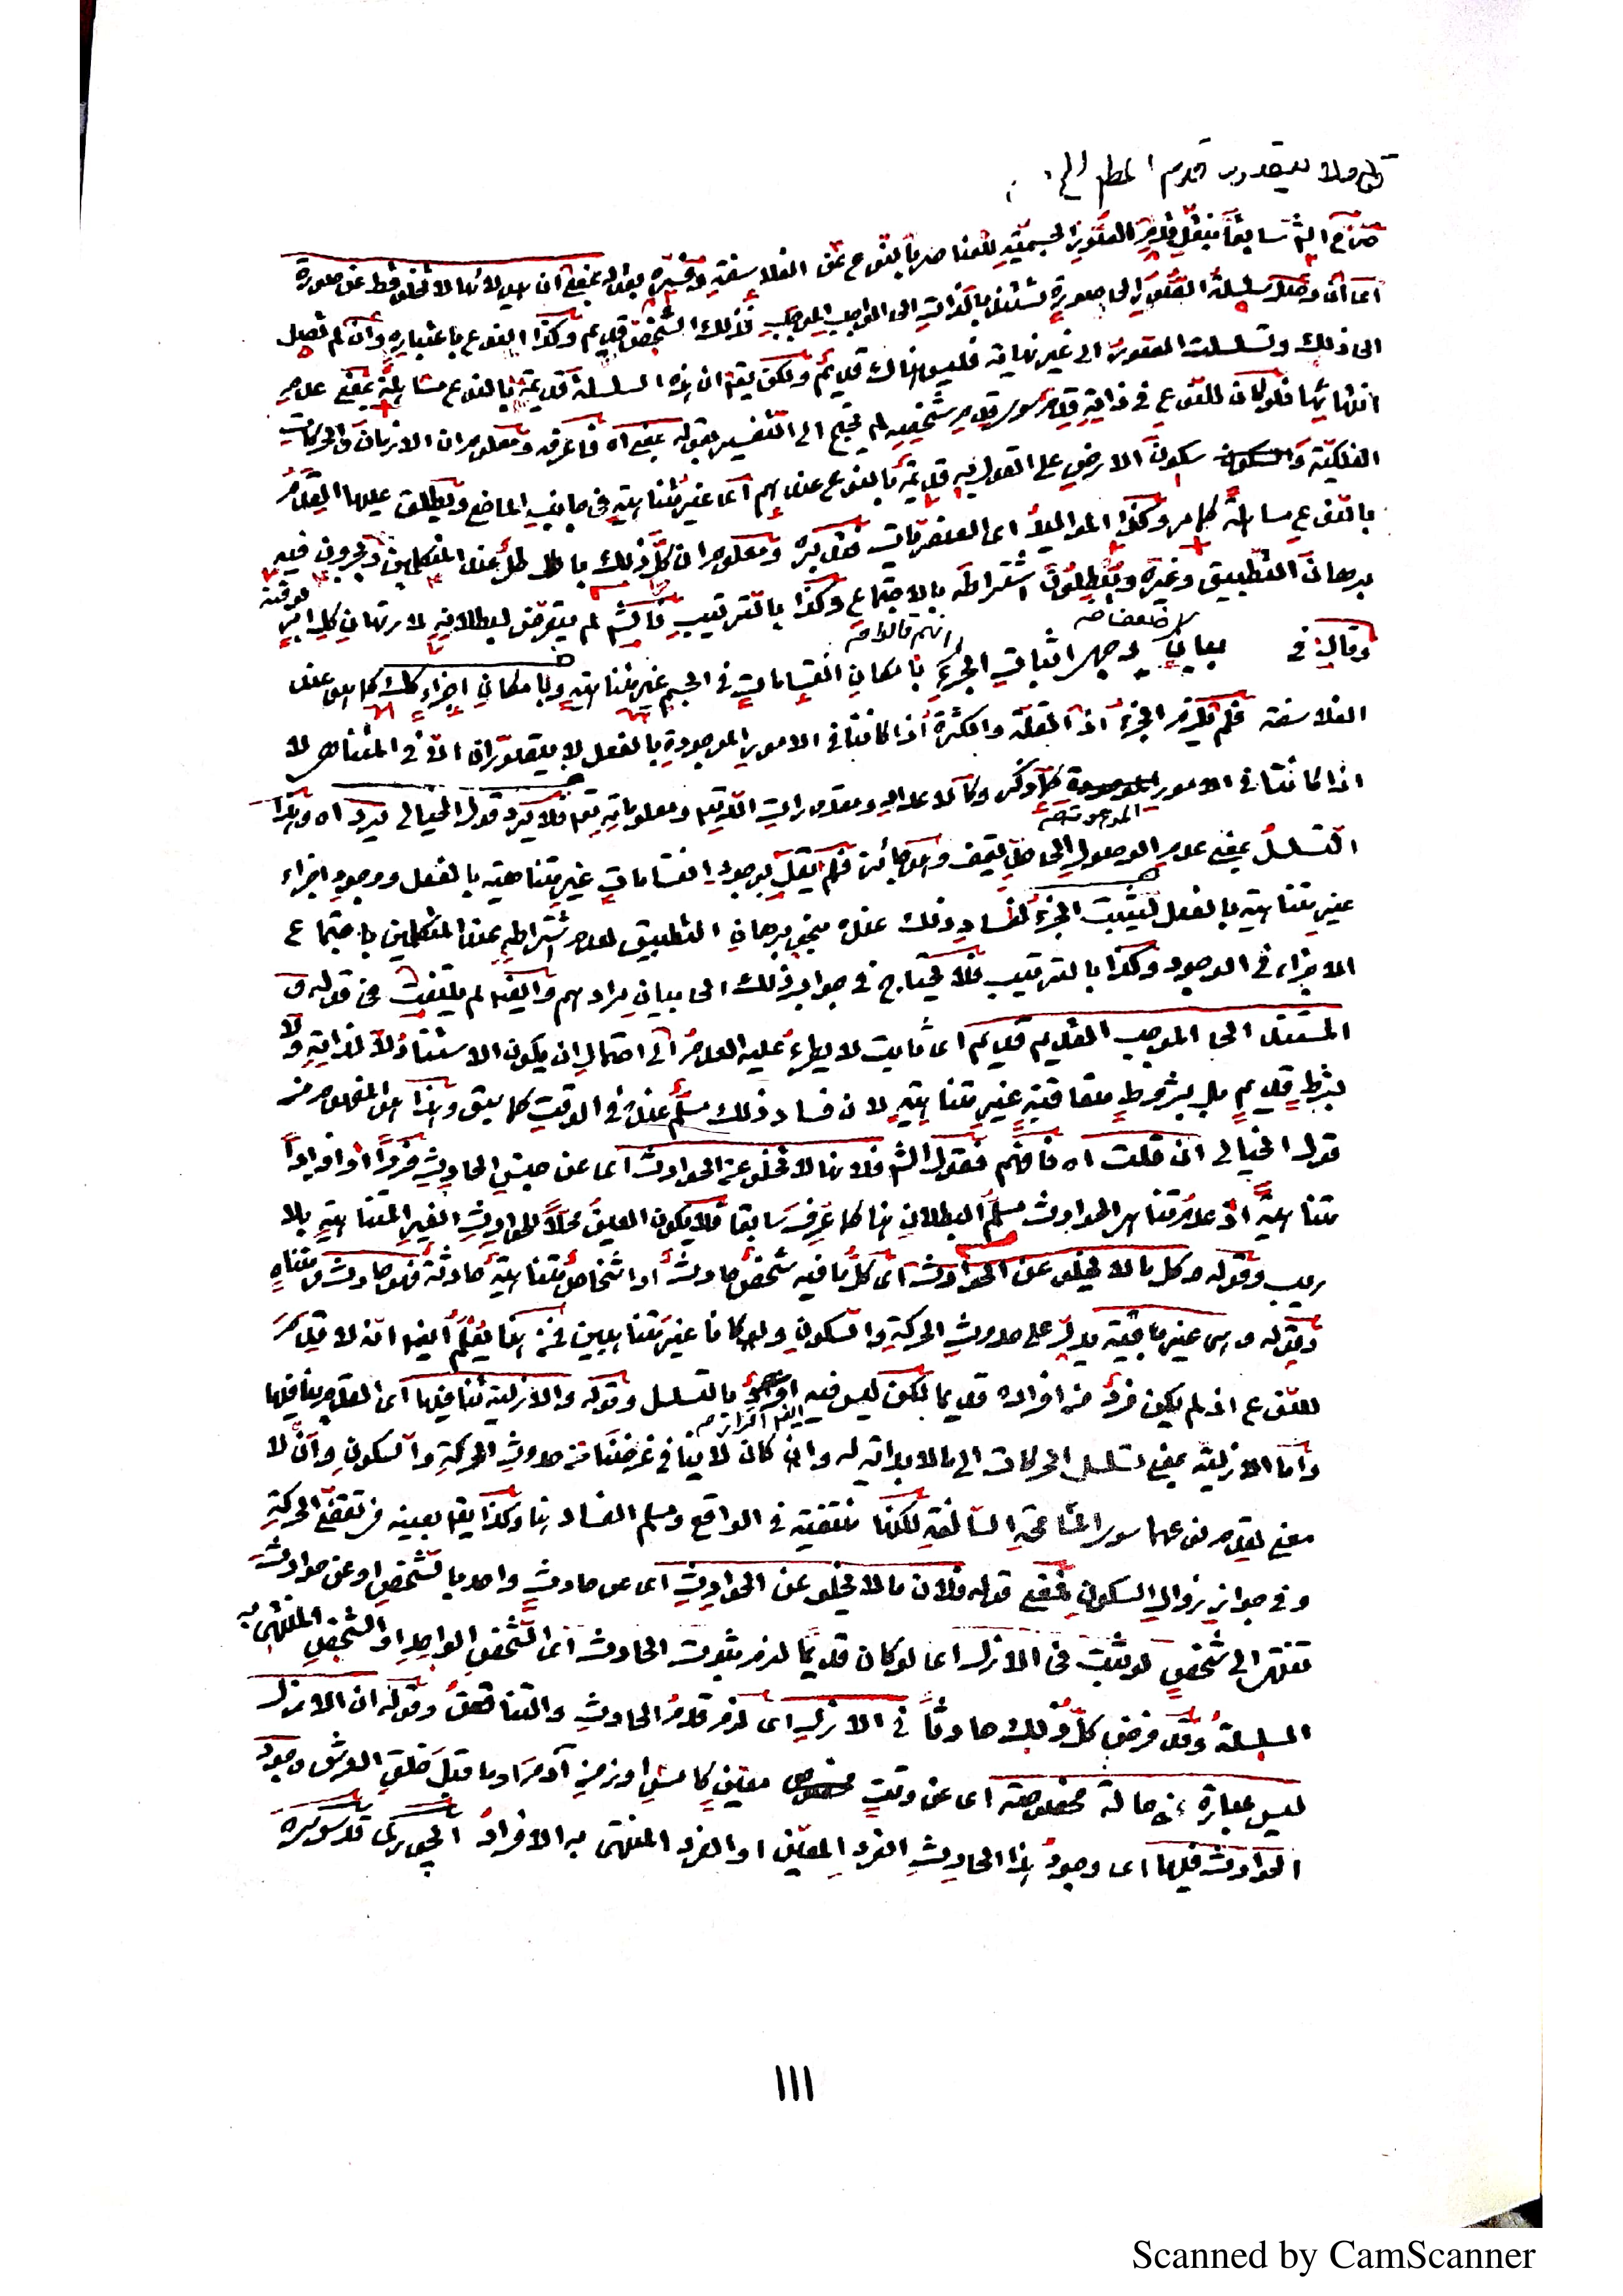 قوله ولا يتصور قدم المطلق الخ
صرّح الش سابقاً بنقل قدم الصُّوَرِ الجسميّةِ للعناصر بالنوع عن الفلاسفة وفسّره بقوله بمعنى ان هيولاتها لا تخلو قط عن صورة
اى ان وصل سلسلة الصُّوَرِ الى صورةٍ تستند بالذات الى الواجب الموجب فذلك الشخص قديم وكذا النوع باعتباره وان لم تصل
الى ذلك وتسلسلت الصور الى غير نهاية فليس هناك قديم ولكن يقه ان هذه السلسلة قديمة بالنوع مسامحةً بمعنى عدم
انتهائها فلو كان للنوع فى ذاته قدم سوى قدم شخصه لم يحتج الى التفسير بقوله بمعنى اه فاعرف ومعلوم ان الازمان والحركات
الفلكيّة وسكون الارض على القول به قديمة بالنوع عندهم اى غير متناهية فى جانب الماضى ويطلق عليها القدم
بالنوع مسامحةً كما مر وكذا المواليد اى العنصريات فتدبره ومعلوم ان كلّ ذلك باطل عند المتكلمين ويجرون فيه
برهان التطبيق وغيره ويبطلون اشتراطه بالاجتماع وكذا بالترتيب فالش لم يتعرض لبطلانه
وقال فى بيان لا ضعفا صه وجهى اثبات الجزء انهم قالوا صه بامكان انقسامات فى الجسم غير متناهية وبامكان اجزاء كذلك كما هو عند
الفلاسفة فلم يلزم الجزء اذ القلّة والكثرة اذا كانتا فى الامور الموجودة بالفعل لا يتصوّران الّا فى المتناهى لا
اذا كانتا فى الامور الموجودة صه كما ذكر وكالاعداد ومقدورات الله تعه ومعلوماته تعه فلا يرد قول الخيالى يرد اه وهذا
التسلسل بمعنى عدم الوصول الى حدّ يقف وهو جائز فلم يقل بوجود انقسامات غير متناهية بالفعل ووجود اجزاء
غير متناهية بالفعل ليثبت الجزء لفساد ذلك عنده بنحو برهان التطبيق لعدم اشتراطه عند المتكلمين باجتماع
الاجزاء فى الوجود وكذا بالترتيب فلا يحتاج فى جواب ذلك الى بيان مرادهم وايضا لم يلتفت فى قوله و
المستند الى الموجب القديم قديم اى ثابت لا يطرء عليه العدم الى احتمال ان يكون الاستناد لا لذاته ولا
بشرط قديم بل بشروط متعاقبة غير متناهية لان فساد ذلك مسلّم عنده فى الوقت كما سبق وهذا هو المفهوم من
قول الخيالى ان قلت اه فافهم فقول الش فلانها لا تخلو عن الحوادث اى عن جنس الحادث فردًا او افرادًا
متناهيةً اذ عدم تناهى الحوادث مسلّم البطلان هنا كما عرف سابقا فلا يكون العين محلاً للحوادث الغير المتناهية بلا
ريب وقوله وكل ما لا يخلو عن الحوادث اى كلّ ما فيه شخص حادث او اشخاص متناهية حادثة فهو حادث متناه
وقوله وهى غير باقية يدلّ على حدوث الحركة والسكون ولو كانا غير متناهيين فمن هنا يعلم ايضا انه لا قدم
للنوع اذ لم يكن فرد من افراده قديما لكن ليس فيه ايضا اقرار صه بالتسلسل وقوله والازلية تنافيها اى القدم ينافيها
واما الازلية بمعنى تسلسل الحركات الى ما لا بداية له وان كان لا ينافى غرضنا من حدوث الحركة والسكون وان لا
معنى لقدم نوعهما سوى المسامحة السالفة لكنها منتفية فى الواقع ومسلم الفساد هنا وكذا يقه بعينه فى تقضّى الحركة
وفى جواز زوال السكون فمعنى قوله فلان ما لا يخلو عن الحوادث اى عن حادث واحد بالشخص او عن حوادث
تنتهى الى شخص لو ثبت فى الازل اى لو كان قديما لزم ثبوت الحادث اى الشخص الواحد او الشخص المنتهى به
السلسلة وقد فرض كلّ ذلك حادثاً فى الازل اى لزم قدم الحادث والتناقض وقوله ان الازل
ليس عبارة عن حالة مخصوصة اى عن وقت معين كامس او زمن آدم او ما قبل خلق العرش وجود
الحوادث فيها اى وجود هذا الحادث الفرد المعين او الفرد المنتهى به الافراد الچورى قدس سره
١١١
Scanned by CamScanner